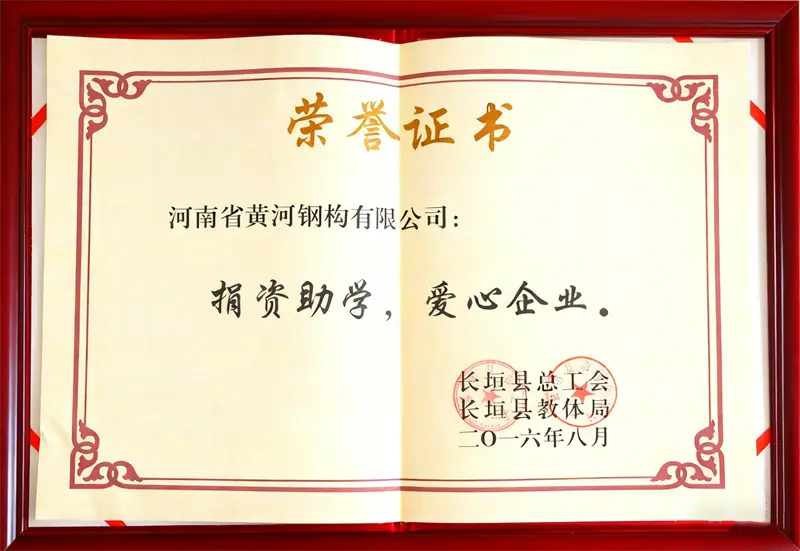 荣誉证书
河南省黄河钢构有限公司：
捐资助学，爱心企业。
长垣县总工会
长垣县教体局
二〇一六年八月